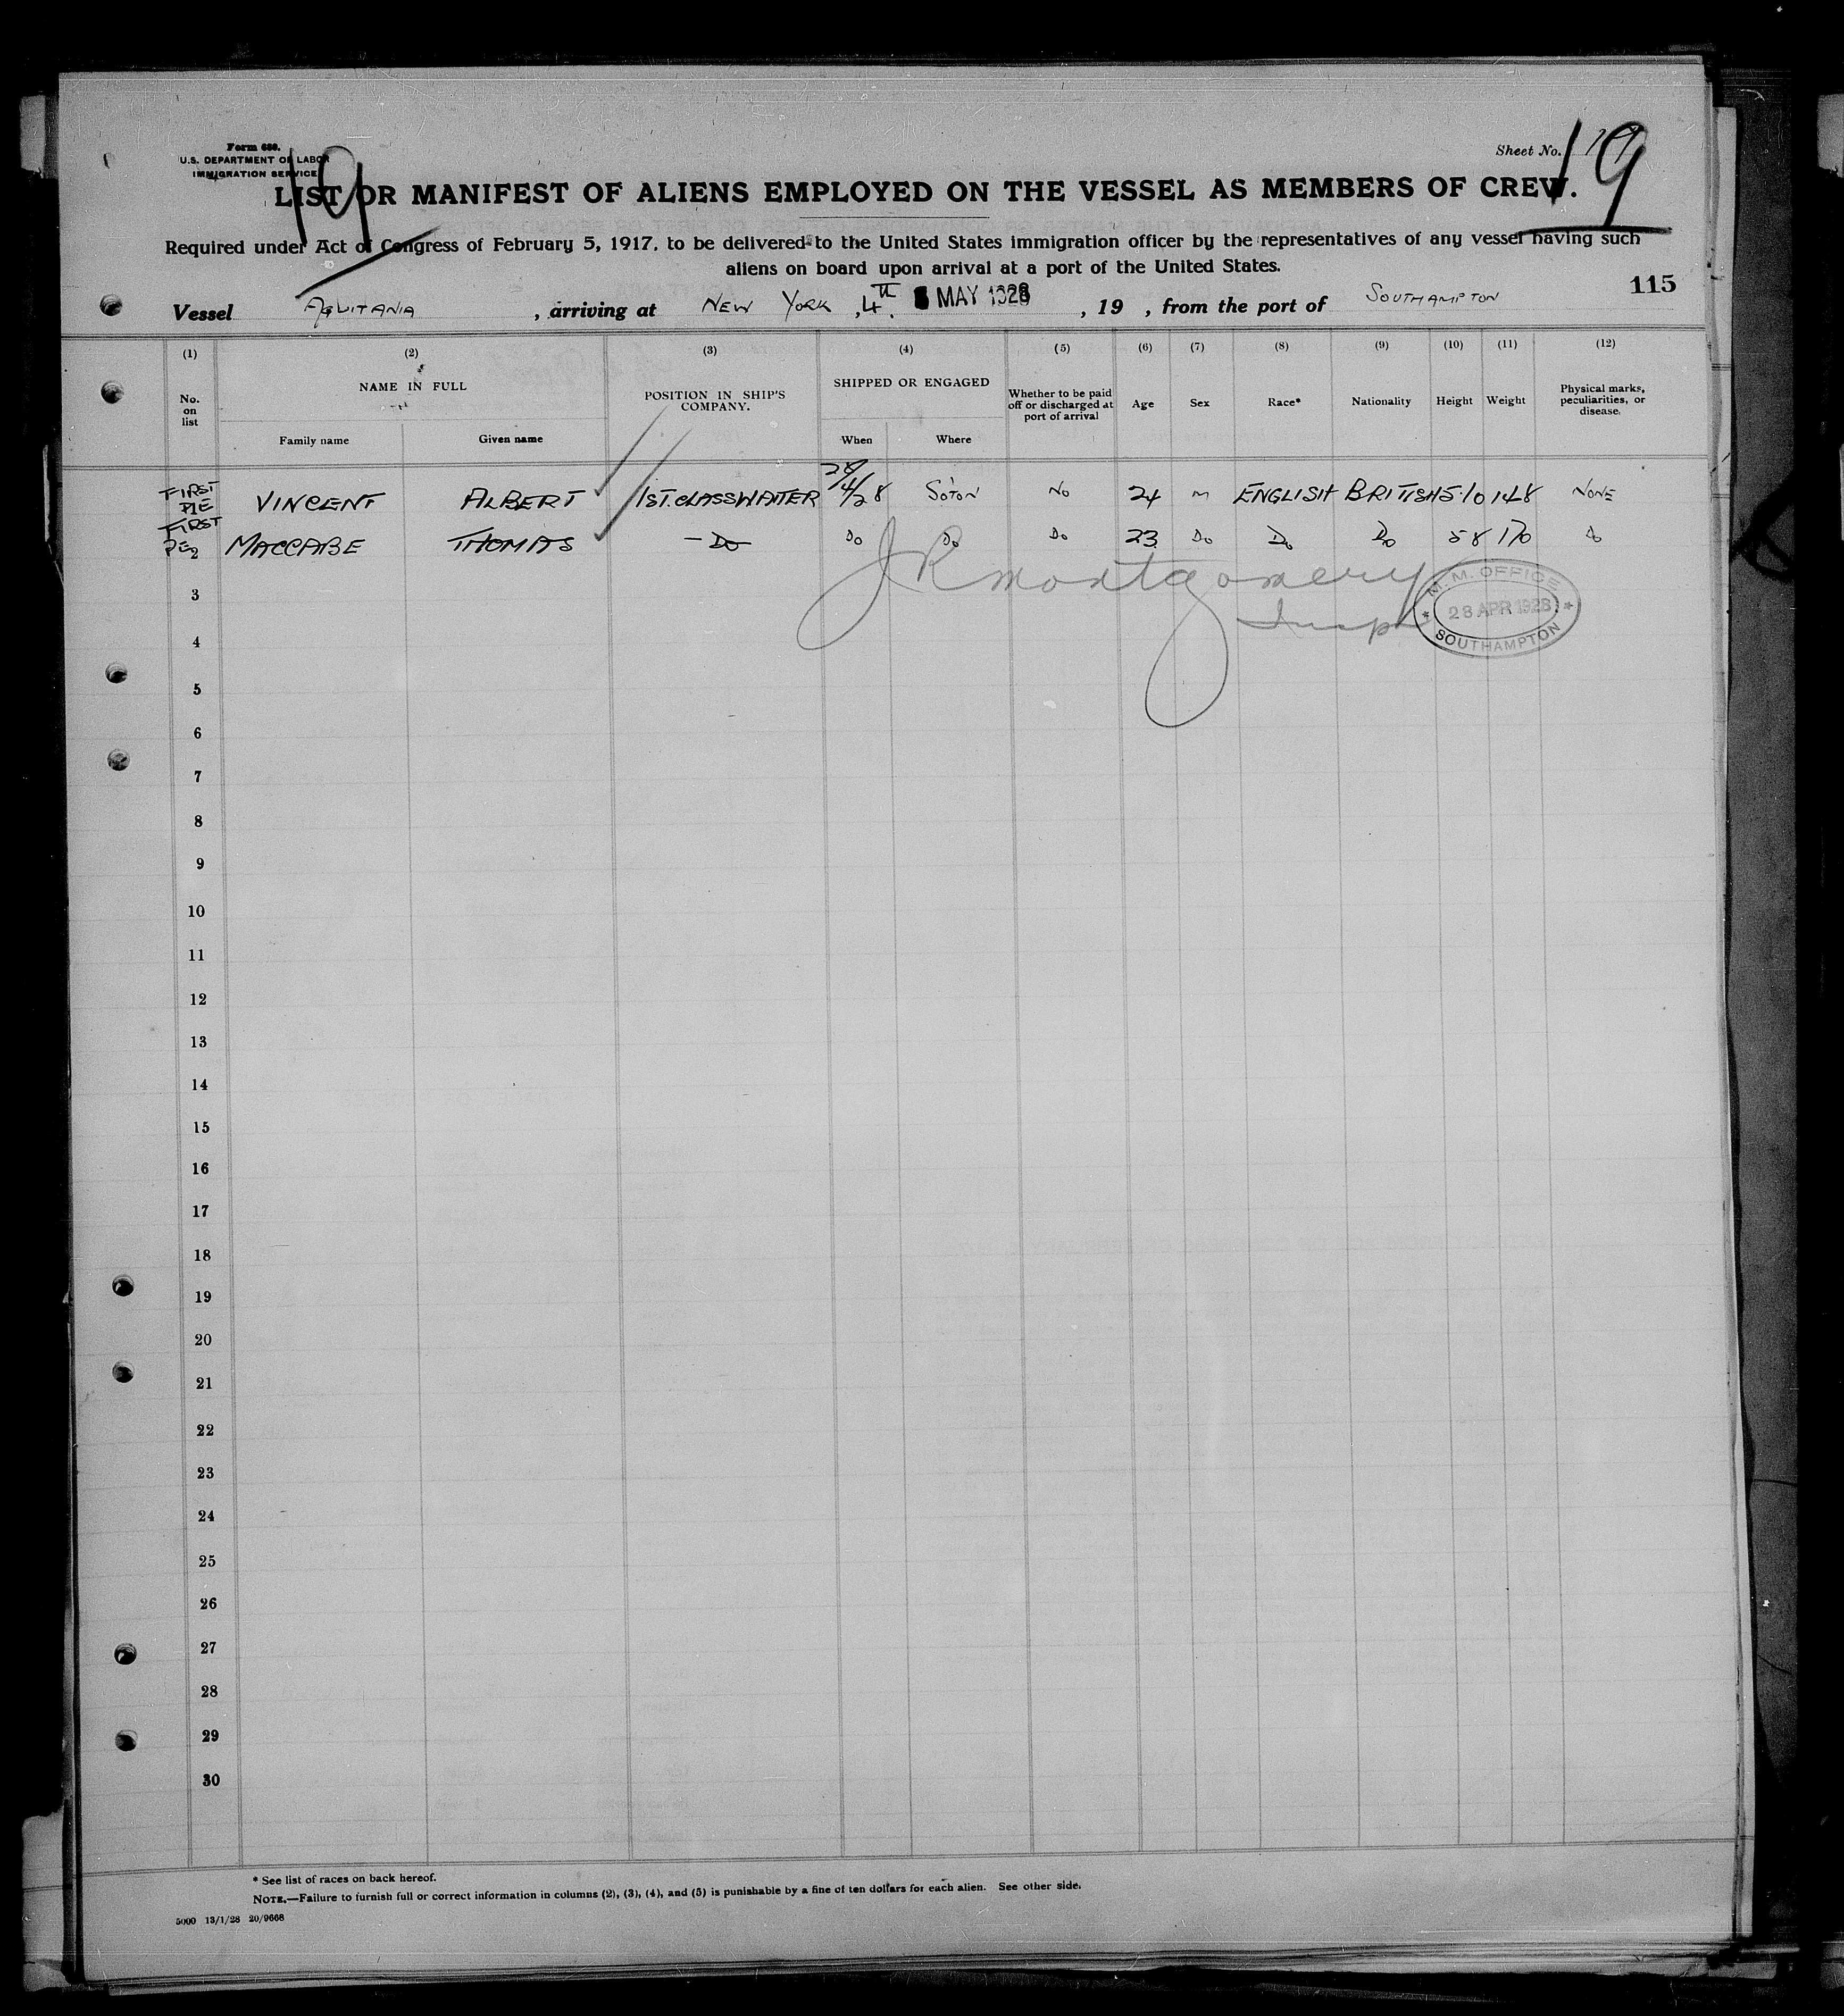 Form 680.
U.S. DEPARTMENT OF LABOR
IMMIGRATION SERVICE
19
Sheet No. 19
LIST OR MANIFEST OF ALIENS EMPLOYED ON THE VESSEL AS MEMBERS OF CREW.
Required under Act of Congress of February 5, 1917, to be delivered to the United States immigration officer by the representatives of any vessel having such
aliens on board upon arrival at a port of the United States.
115
Vessel AQUITANIA , arriving at NEW YORK , 4TH. MAY 1928 , 19 , from the port of SOUTHAMPTON
(1) (2) (3) (4) (5) (6) (7) (8) (9) (10) (11) (12)
No. on list
NAME IN FULL
Family name
Given name
POSITION IN SHIP'S COMPANY.
SHIPPED OR ENGAGED
When
Where
Whether to be paid off or discharged at port of arrival
Age
Sex
Race*
Nationality
Height
Weight
Physical marks, peculiarities, or disease.
FIRST VINCENT ALBERT 1ST. CLASS WAITER 28/4/28 SO'TON NO 24 M ENGLISH BRITISH 5·10 148 NONE
FIRST 2 MACCABE THOMAS - DO DO DO DO 23 DO DO DO 5 8 170 DO
JR Montgomery
Insp
M. M. OFFICE
28 APR 1928
SOUTHAMPTON
3
4
5
6
7
8
9
10
11
12
13
14
15
16
17
18
19
20
21
22
23
24
25
26
27
28
29
30
* See list of races on back hereof.
NOTE.—Failure to furnish full or correct information in columns (2), (3), (4), and (5) is punishable by a fine of ten dollars for each alien. See other side.
5000 13/1/28 20/9668